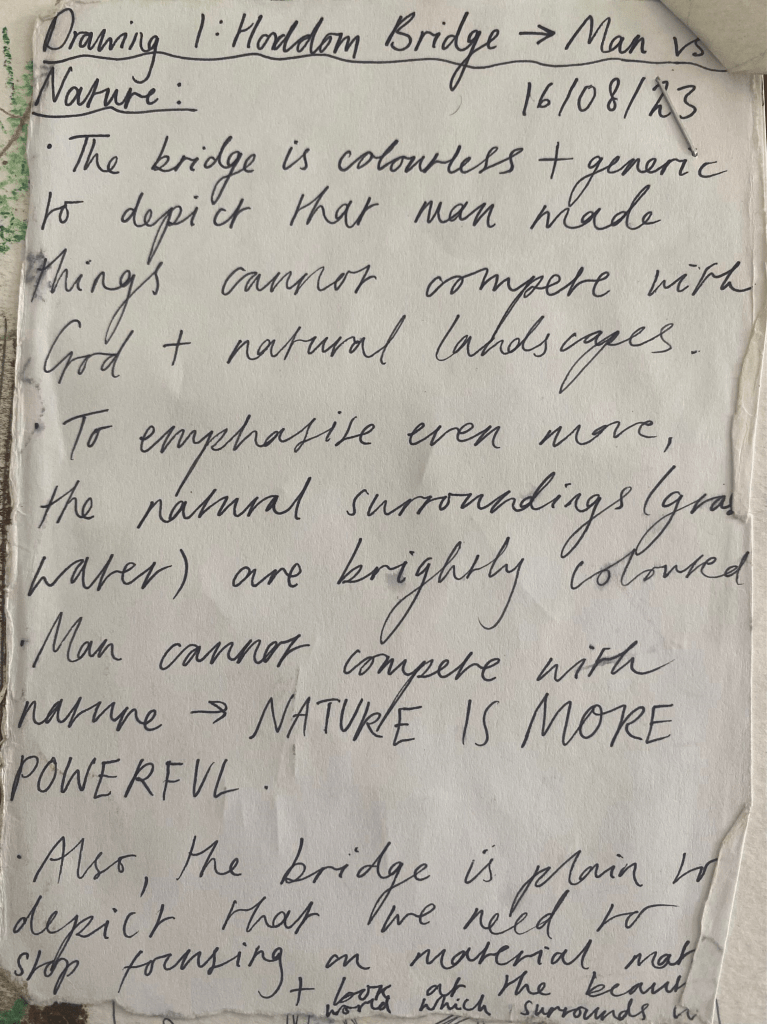 Drawing 1: Hoddom Bridge → Man vs
Nature:
16/08/23
· The bridge is colourless + generic
to depict that man made
things cannot compete with
God + natural landscapes.
· To emphasise even more,
the natural surroundings (gras
water) are brightly coloured
· Man cannot compete with
nature → NATURE IS MORE
POWERFUL.
· Also, the bridge is plain to
depict that we need to
stop focusing on material mat
+ look at the beaut
world which surrounds u